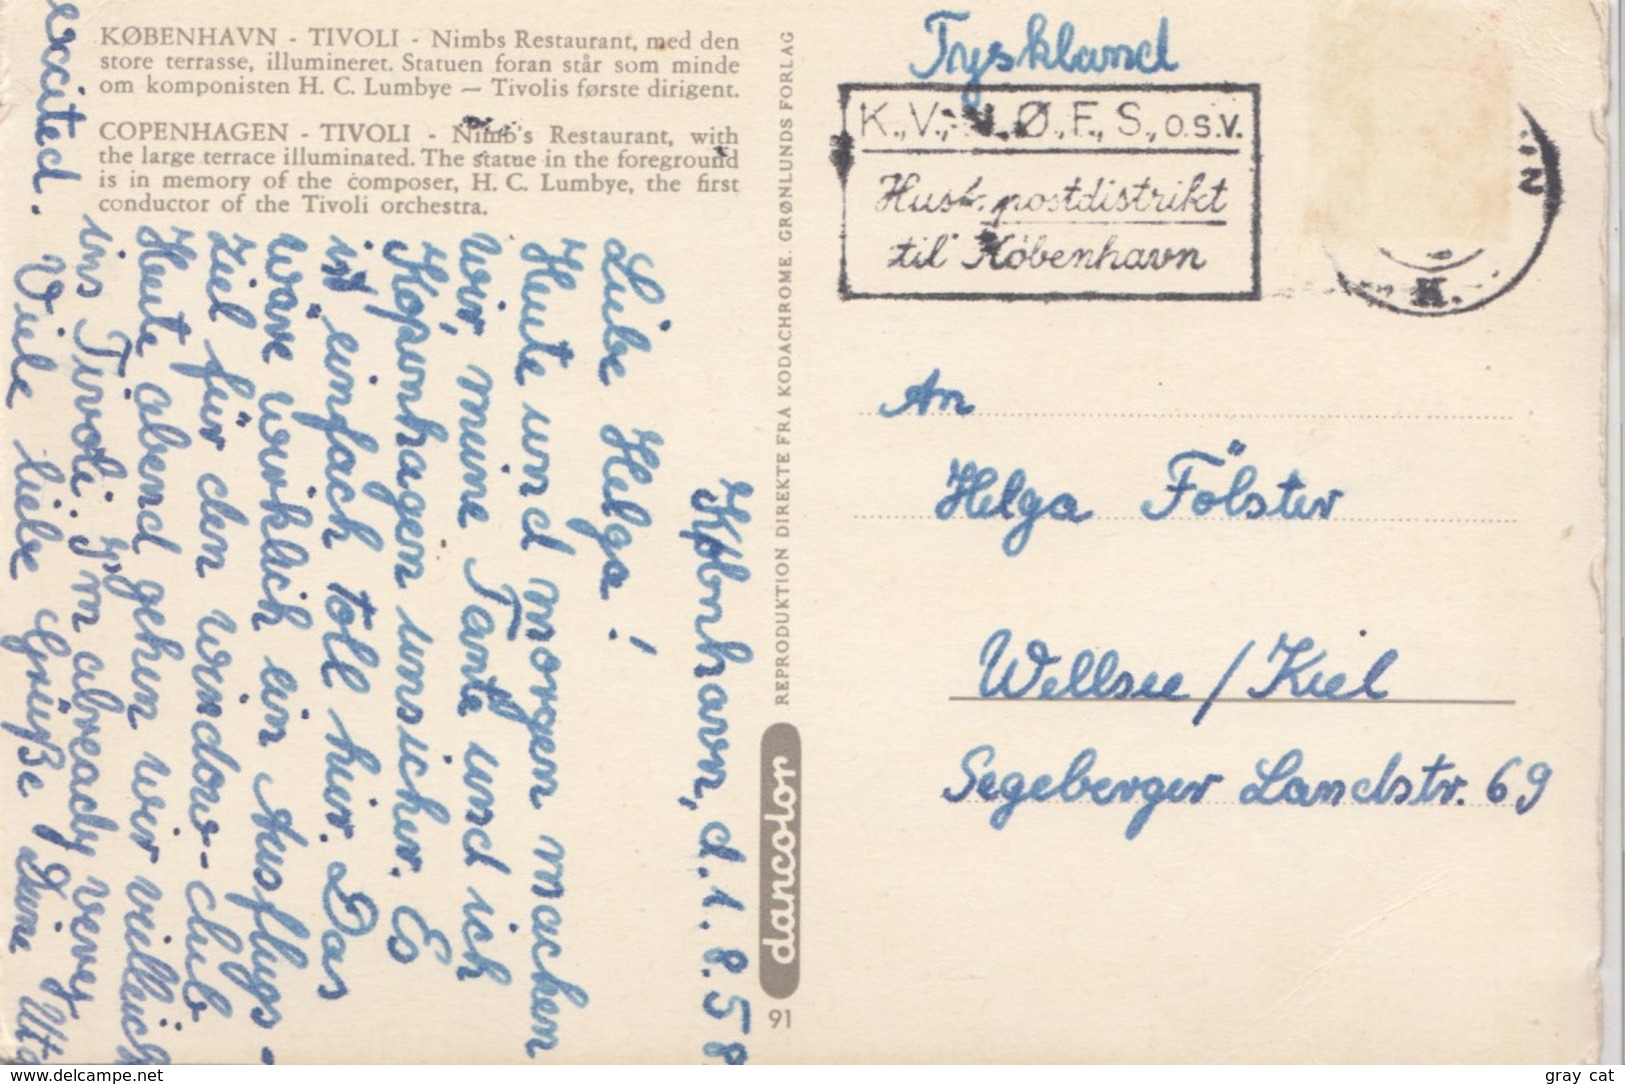 KØBENHAVN - TIVOLI - Nimbs Restaurant, med den
store terrasse, illumineret. Statuen foran står som minde
om komponisten H. C. Lumbye — Tivolis første dirigent.
COPENHAGEN - TIVOLI - Nimb's Restaurant, with
the large terrace illuminated. The statue in the foreground
is in memory of the composer, H. C. Lumbye, the first
conductor of the Tivoli orchestra.
Købnhavn, d. 1. 8. 58
Liebe Helga!
Heute und morgen machen
wir, meine Tante und ich
Kopenhagen unsicher. Es
ist einfach toll hier. Das
wäre wirklich ein Ausflugs-
ziel für den window-club
Heute abend gehen wir vielleicht
ins Tivoli. I'm already verey
excited. Viele liebe Grüße Deine Uta
REPRODUKTION DIREKTE FRA KODACHROME. GRØNLUNDS FORLAG
dancolor
91
Tyskland
K., V., N., Ø., F., S., o.s.v.
Husk postdistrikt
til København
K.
An
Helga Fölster
Wellsee / Kiel
Segeberger Landstr. 69
www.delcampe.net
gray cat